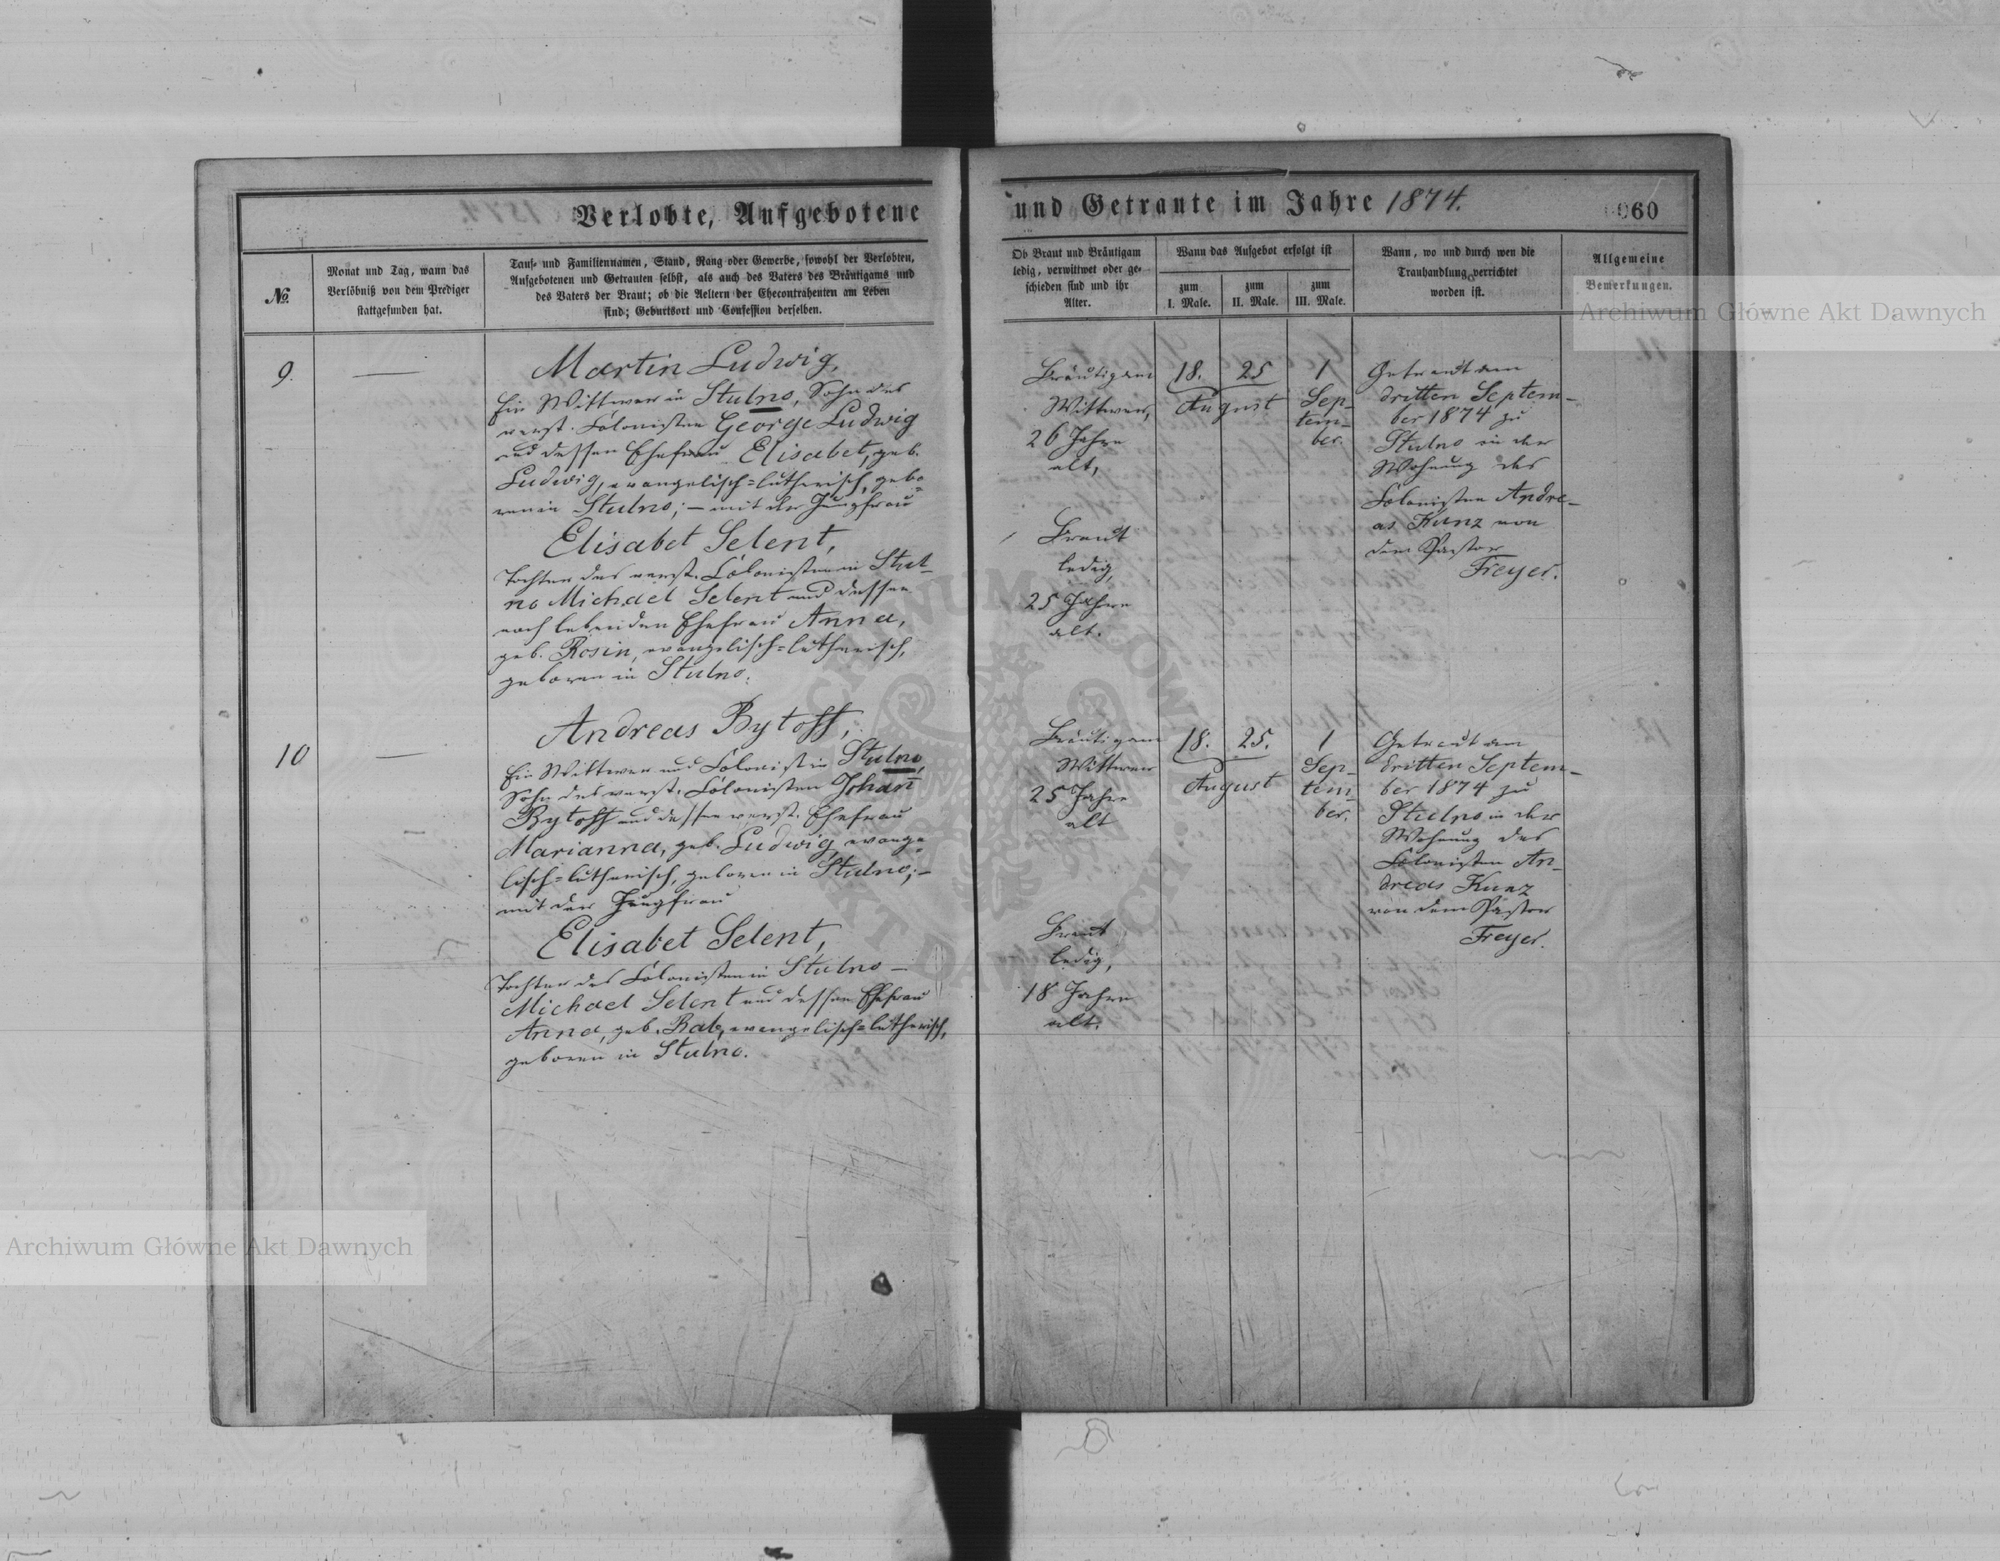 Verlobte, Aufgebotene
und Getraute im Jahre 1874.
060
№
Monat und Tag, wann das
Verlöbniß von dem Prediger
stattgefunden hat.
Tauf- und Familiennamen, Stand, Rang oder Gewerbe, sowohl der Verlobten,
Aufgebotenen und Getrauten selbst, als auch des Vaters des Bräutigams und
des Vaters der Braut; ob die Aeltern der Ehecontrahenten am Leben
sind; Geburtsort und Confession derselben.
Ob Braut und Bräutigam
ledig, verwittwet oder ge-
schieden sind und ihr
Alter.
Wann das Aufgebot erfolgt ist
zum
I. Male.
zum
II. Male.
zum
III. Male.
Wann, wo und durch wen die
Trauhandlung verrichtet
worden ist.
Allgemeine
Bemerkungen.
9.
—
Martin Ludwig,
Ein Wittwer in Stulno, Sohn des
verst. Colonisten George Ludwig
und dessen Ehefrau Elisabet, geb.
Ludwig, evangelisch=lutherisch, gebo=
ren in Stulno; – mit der Jungfrau
Elisabet Selent,
Tochter des verst. Colonisten in Stul-
no Michael Selent und dessen
noch lebenden Ehefrau Anna,
geb. Rosin, evangelisch=lutherisch,
geboren in Stulno.
Bräutigam
Wittwer,
26 Jahre
alt,
Braut
ledig,
25 Jahre
alt.
18. 25
August
1
Sep-
tem-
ber.
Getraut am
dritten Septem-
ber 1874 zu
Stulno in der
Wohnung des
Colonisten Andre-
as Kunz von
dem Pastor
Freyer.
10
—
Andreas Bytoff,
Ein Wittwer und Colonist in Stulno,
Sohn des verst. Colonisten Johan̄
Bytoff und dessen verst. Ehefrau
Marianna, geb. Ludwig evange=
lisch=lutherisch, geboren in Stulno; –
mit der Jungfrau
Elisabet Selent,
Tochter des Colonisten in Stulno –
Michael Selent und dessen Ehefrau
Anna, geb. Rab, evangelisch=lutherisch,
geboren in Stulno.
Bräutigam
Wittwer
25 Jahre
alt
Braut
ledig,
18 Jahre
alt.
18. 25.
August
1
Sep-
tem-
ber.
Getraut am
dritten Septem-
ber 1874 zu
Stulno in der
Wohnung des
Colonisten An-
dreas Kunz
von dem Pastor
Freyer.
Archiwum Główne Akt Dawnych
Archiwum Główne Akt Dawnych
ARCHIWUM GŁÓWNE
AKT DAWNYCH